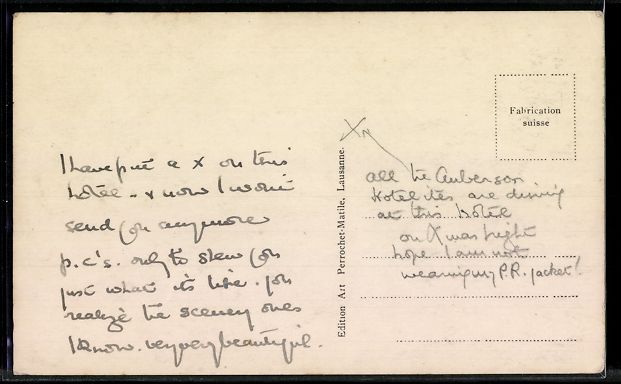 I have put a x on this
hotel - & now I won't
send you anymore
p.c's. only to show you
just what it's like. you
realize the scenery ones
I know. very very beautiful.
Edition Art Perrochet-Matile, Lausanne.
Fabrication
suisse
X
all the Auberson
Hotel ites are dining
at this Hotel
on Xmas night
hope I am not
wearing my P.R. jacket!